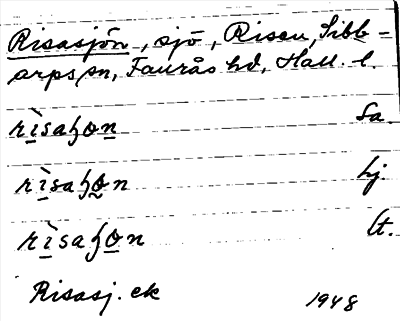 Risasjön, sjö, Risen, Sibb-
arps sn, Faurås hd, Hall. l.
rìsaꜧon Sa.
rìsaꜧon hj.
rìsaꜧon lt.
Risasj. ek 1948